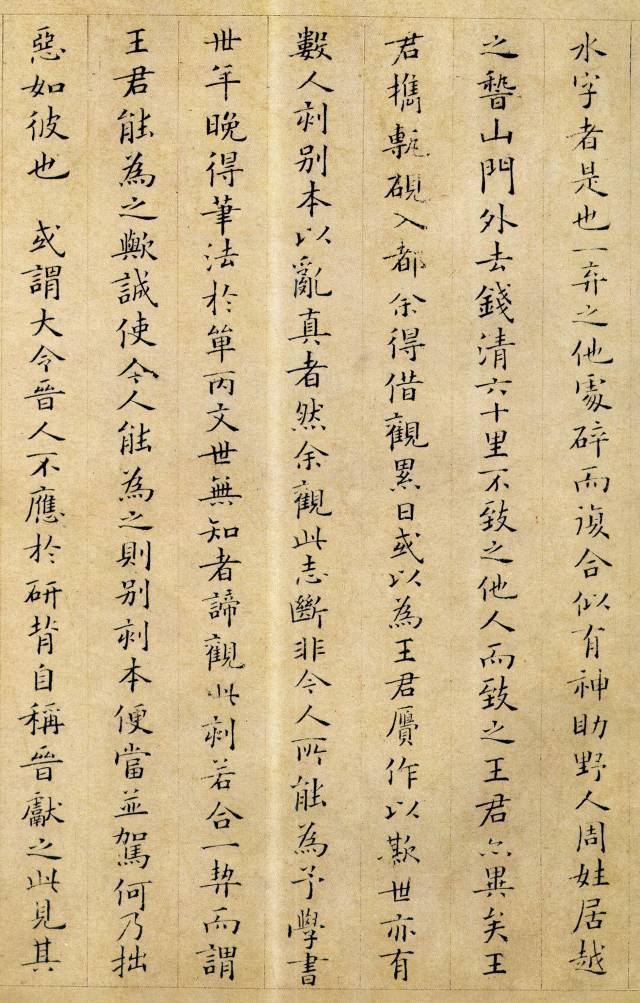 水字者是也一弃之他處碎而復合似有神助野人周姓居越
之稽山門外去錢清六十里不致之他人而致之王君亦異矣王
君攜甎硯入都余得借觀累日或以為王君贋作以欺世亦有
數人刻別本以亂真者然余觀此志斷非今人所能為予學書
丗年晚得筆法於單丙文世無知者諦觀此刻若合一契而謂
王君能為之歟誠使今人能為之則別刻本便當並駕何乃拙
惡如彼也　或謂大令晉人不應於研背自稱晉獻之此見其